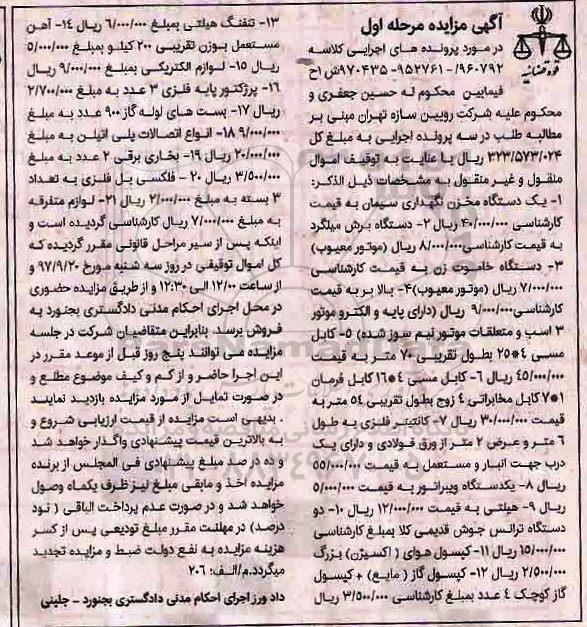 آگهی مزایده مرحله اول
در مورد پرونده های اجرایی کلاسه
۹۶۰۷۹۲/- ۹۵۲۷۶۱-۹۷۰۴۳۵ش اح
فیمابین محکوم له حسین جعفری و
محکوم علیه شرکت رویین سازه تهران مبنی بر
مطالبه طلب در سه پرونده اجرایی به مبلغ کل
۳۲۳/۵۷۳/۰۲۴ ریال با عنایت به توقیف اموال
منقول و غیر منقول به مشخصات ذیل الذکر:
۱- یک دستگاه مخزن نگهداری سیمان به قیمت
کارشناسی ۴۰/۰۰۰/۰۰۰ ریال ۲- دستگاه برش میلگرد
به قیمت کارشناسی۸/۰۰۰/۰۰۰ ریال (موتور معیوب)
۳- دستگاه خاموت زن به قیمت کارشناسی
۷/۰۰۰/۰۰۰ ریال (موتور معیوب)۴- بالا بر به قیمت
کارشناسی ۹/۰۰۰/۰۰۰ ریال (دارای پایه و الکترو موتور
۳ اسب و متعلقات موتور نیم سوز شده) ۵- کابل
مسی ۴*۲۵ بطول تقریبی ۷۰ متر به قیمت
۴۵/۰۰۰/۰۰۰ ریال ۶- کابل مسی ۴*۱۶ کابل فرمان
۱*۷ کابل مخابراتی ۴ زوج بطول تقریبی ۵۴ متر به
قیمت ۳۰/۰۰۰/۰۰۰ ریال ۷- کانتینر فلزی به طول
۶ متر و عرض ۲ متر از ورق فولادی و دارای یک
درب جهت انبار و مستعمل به قیمت ۵۵/۰۰۰/۰۰۰
ریال ۸- یکدستگاه ویبراتور به قیمت ۵/۰۰۰/۰۰۰
ریال ۹- هیلتی به قیمت ۱۲/۰۰۰/۰۰۰ ریال ۱۰- دو
دستگاه ترانس جوش قدیمی کلا بمبلغ کارشناسی
۱۵/۰۰۰/۰۰۰ ریال ۱۱- کپسول هوای ( اکسیژن) بزرگ
۲/۵۰۰/۰۰۰ ریال ۱۲- کپسول گاز ( مایع) + کپسول
گاز کوچک ۴ عدد بمبلغ کارشناسی ۳/۵۰۰/۰۰۰ ریال
۱۳- تتفنگ هیلتی بمبلغ ۶/۰۰۰/۰۰۰ ریال ۱۴- آهن
مستعمل بوزن تقریبی ۲۰۰ کیلو بمبلغ ۵/۰۰۰/۰۰۰
ریال ۱۵- لوازم الکتریکی بمبلغ ۹/۰۰۰/۰۰۰ ریال
۱۶- پرژکتور پایه فلزی ۳ عدد به مبلغ ۲/۷۰۰/۰۰۰
ریال ۱۷- بست های لوله گاز ۹۰۰ عدد به مبلغ
۹/۰۰۰/۰۰۰ ۱۸- انواع اتصالات پلی اتیلن به مبلغ
۲۰/۰۰۰/۰۰۰ ریال ۱۹- بخاری برقی ۲ عدد به مبلغ
۳/۵۰۰/۰۰۰ ریال ۲۰ - فلکسی بل فلزی به تعداد
۳ بسته به مبلغ ۲/۰۰۰/۰۰۰ ریال ۲۱- لوازم متفرقه
به مبلغ ۷/۰۰۰/۰۰۰ ریال کارشناسی گردیده است و
اینکه پس از سیر مراحل قانونی مقرر گردیده که
کل اموال توقیفی در روز سه شنبه مورخ ۹۷/۹/۲۰
از ساعت ۱۲/۰۰ الی ۱۲:۳۰ و از طریق مزایده حضوری
در محل اجرای احکام مدنی دادگستری بجنورد به
فروش برسد. بنابراین متقاضیان شرکت در جلسه
مزایده می توانند پنج روز قبل از موعد مقرر در
این اجرا حاضر و از کم و کیف موضوع مطلع و
در صورت تمایل از مورد مزایده بازدید نمایند
. بدیهی است مزایده از قیمت ارزیابی شروع و
به بالاترین قیمت پیشنهادی واگذار خواهد شد
و ده در صد مبلغ پیشنهادی فی المجلس از برنده
مزایده اخذ و مابقی مبلغ نیز ظرف یکماه وصول
خواهد شد و در صورت عدم پرداخت الباقی ( نود
درصد) در مهلت مقرر مبلغ تودیعی پس از کسر
هزینه مزایده به نفع دولت ضبط و مزایده تجدید
میگردد.م/الف: ۲۰۶
داد ورز اجرای احکام مدنی دادگستری بجنورد - جلینی